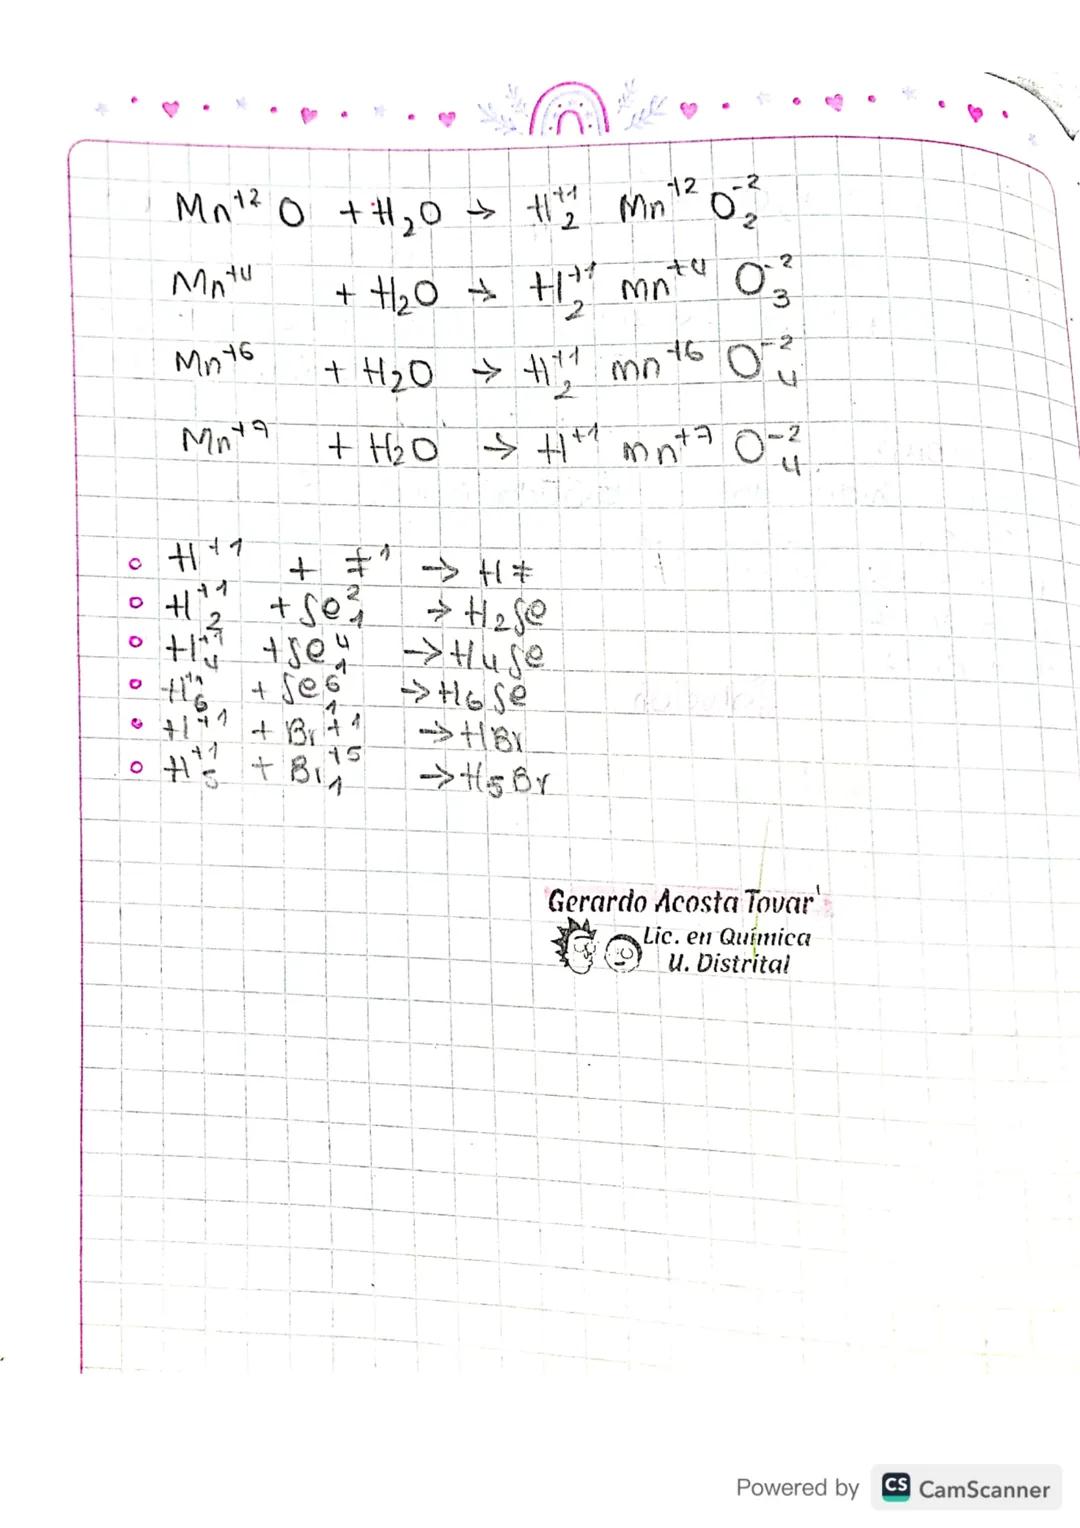 Mn⁺² O + H₂O → H₂⁺¹ Mn⁺² O₂⁻²
Mn⁺⁴ + H₂O → H₂⁺¹ mn⁺⁴ O₃⁻²
Mn⁺⁶ + H₂O → H₂⁺¹ mn⁺⁶ O₄⁻²
Mn⁺⁷ + H₂O → H⁺¹ mn⁺⁷ O₄⁻²
H⁺¹ + F¹ → HF
H₂⁺¹ + Se₁² → H₂Se
H₄⁺¹ + Se₁⁴ → H₄Se
H₆⁺¹ + Se₁⁶ → H₆Se
H⁺¹ + Br⁺¹ → HBr
H₅⁺¹ + Br₁⁺⁵ → H₅Br
Gerardo Acosta Tovar
Lic. en Química
U. Distrital
Powered by CS CamScanner